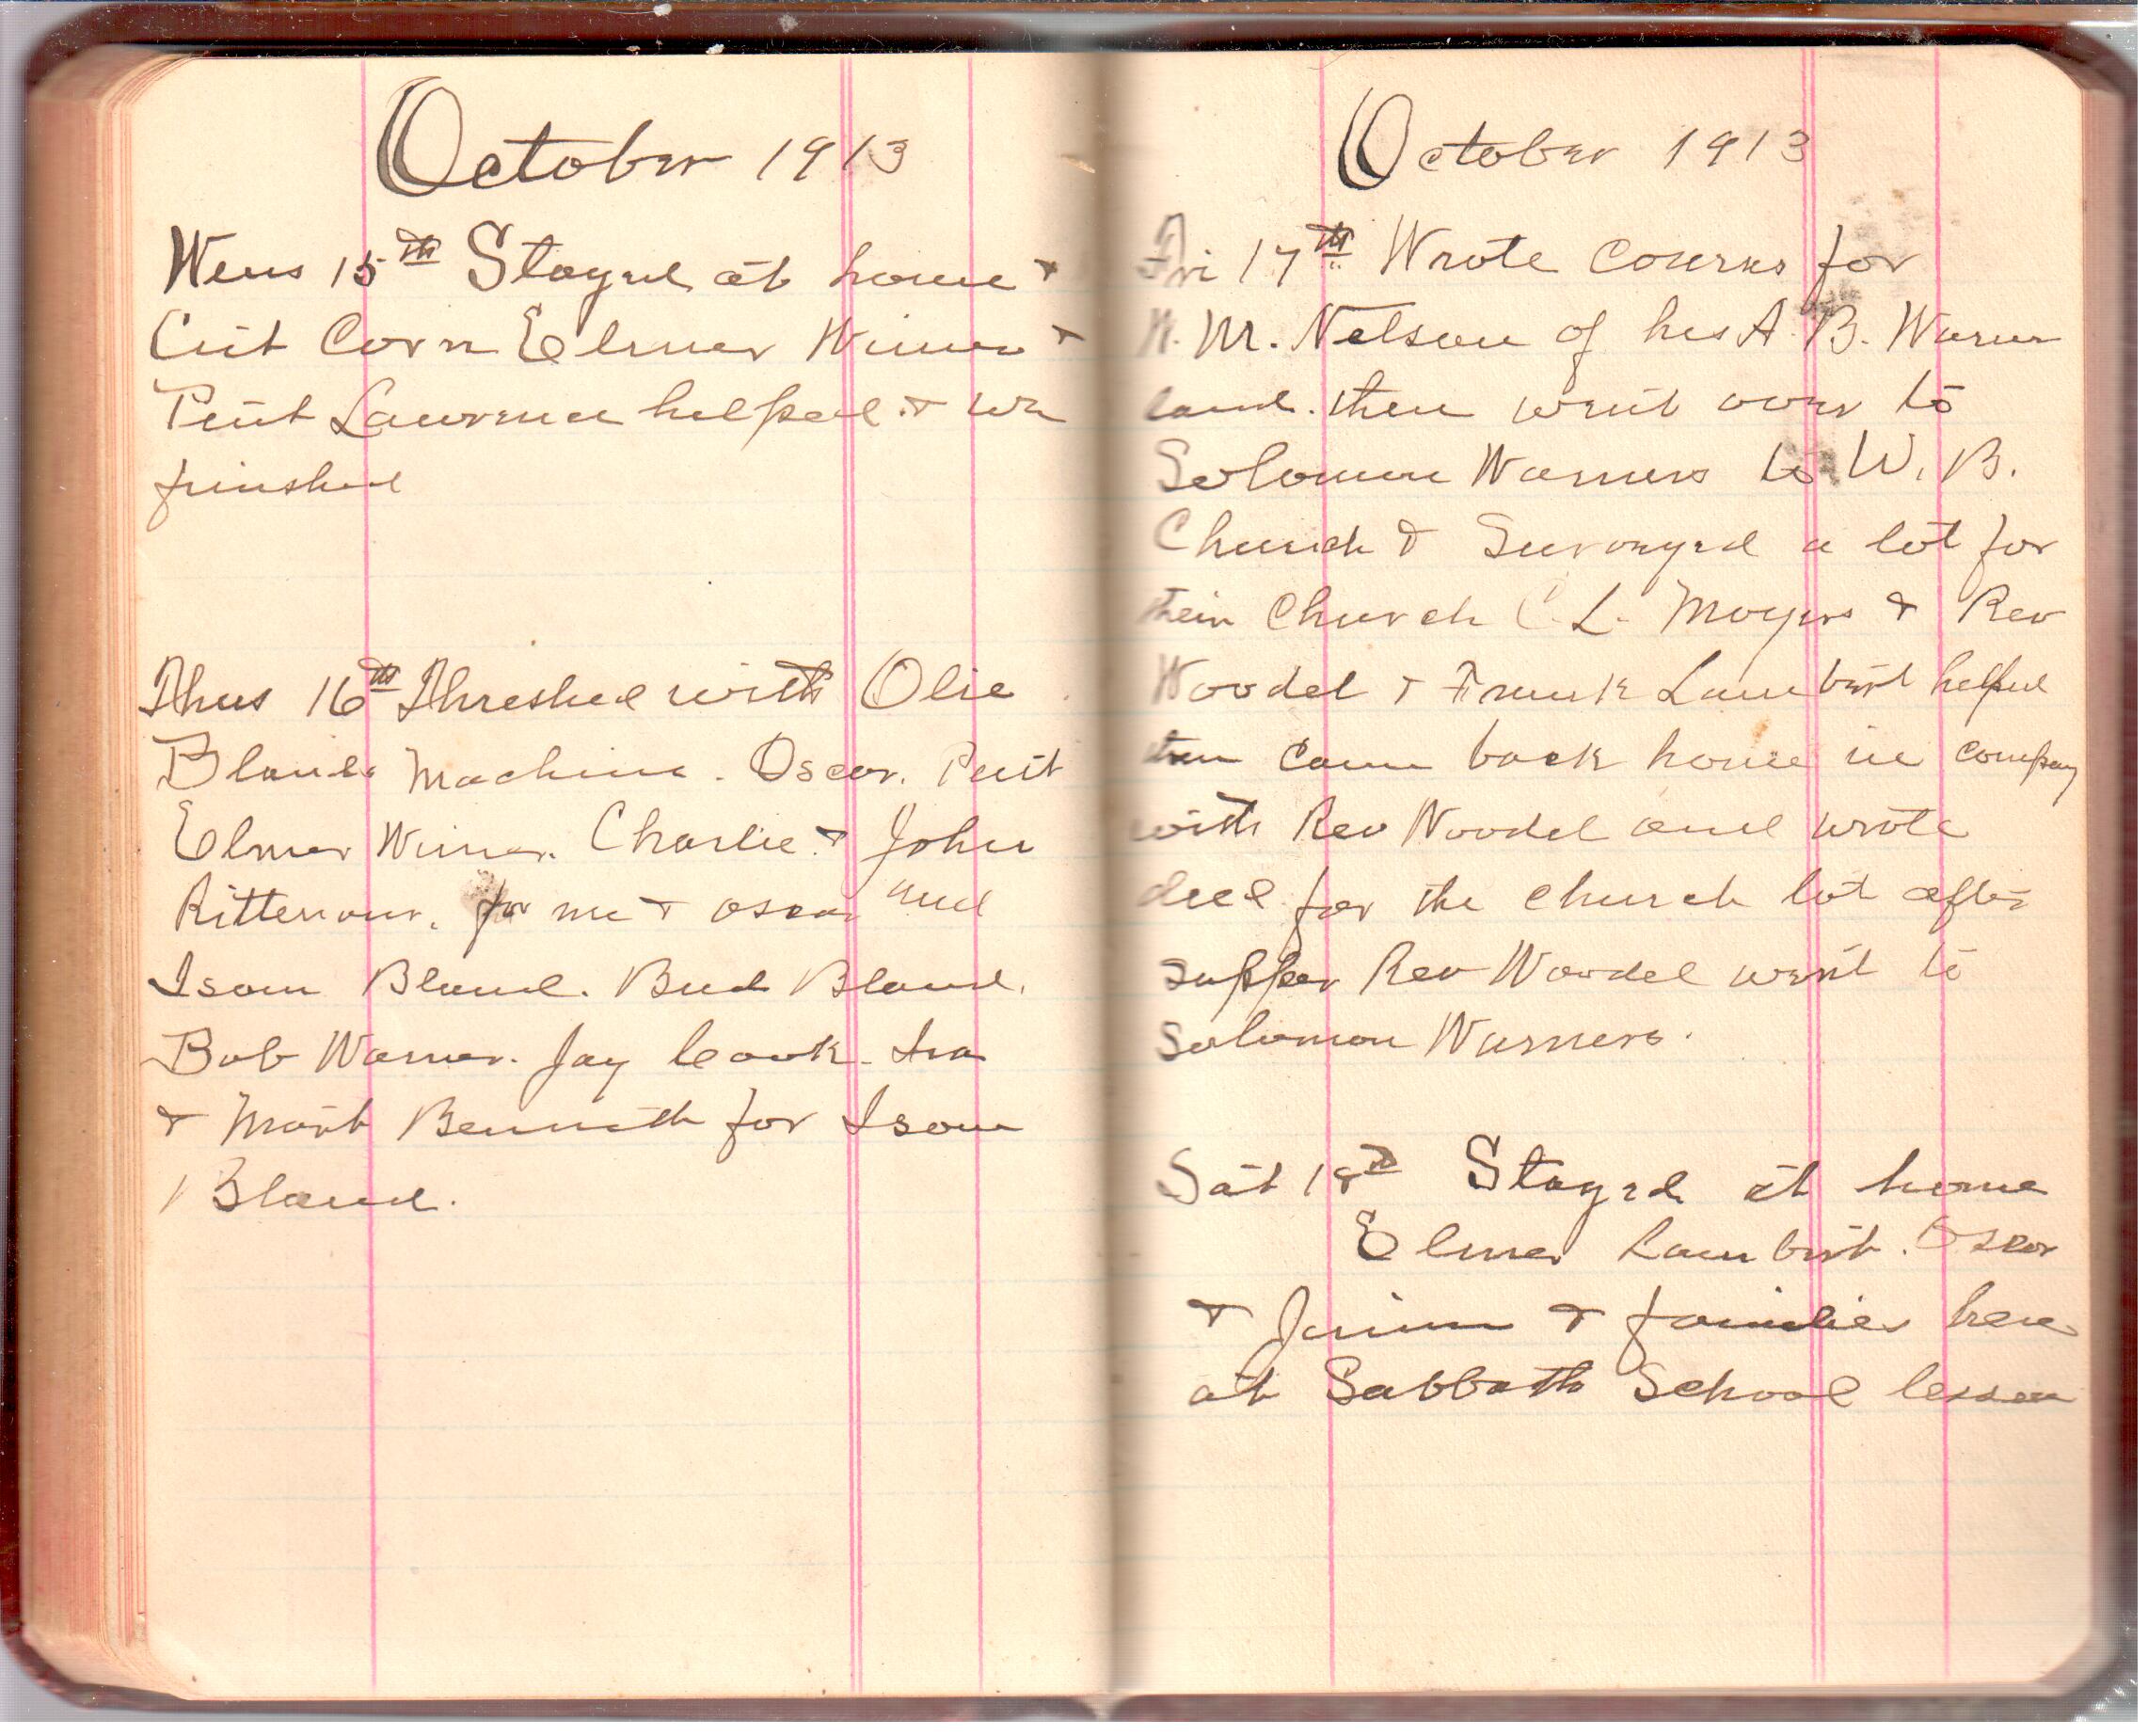 October 1913
Wens 15th Stayed at home &
Cut Corn Elmer Wimer &
Pent Lawrence helped & we
finshed
Thus 16th Threshed with Olie
Blands Machine. Oscar. Pent
Elmer Wimer. Charlie & John
Rittenour. for me & Oscar and
Isom Bland. Bud Bland.
Bob Warner. Jay Cook. Ira
& Mart Bennett for Isom
Bland.
October 1913
Fri 17th Wrote Courses for
M. Nelson of his A. B. Warner
land. then went over to
Solomon Warners to W. B.
Church & Surveyed a lot for
their Church C. L. Moyers & Rev
Woodel & Frank Lambert helped
then came back home in company
with Rev Woodel and wrote
deed for the church lot after
supper Rev Woodel went to
Solomon Warners.
Sat 18th Stayed at home
Elmer Lambert. Oscar
& & families here
at Sabbath School lesson